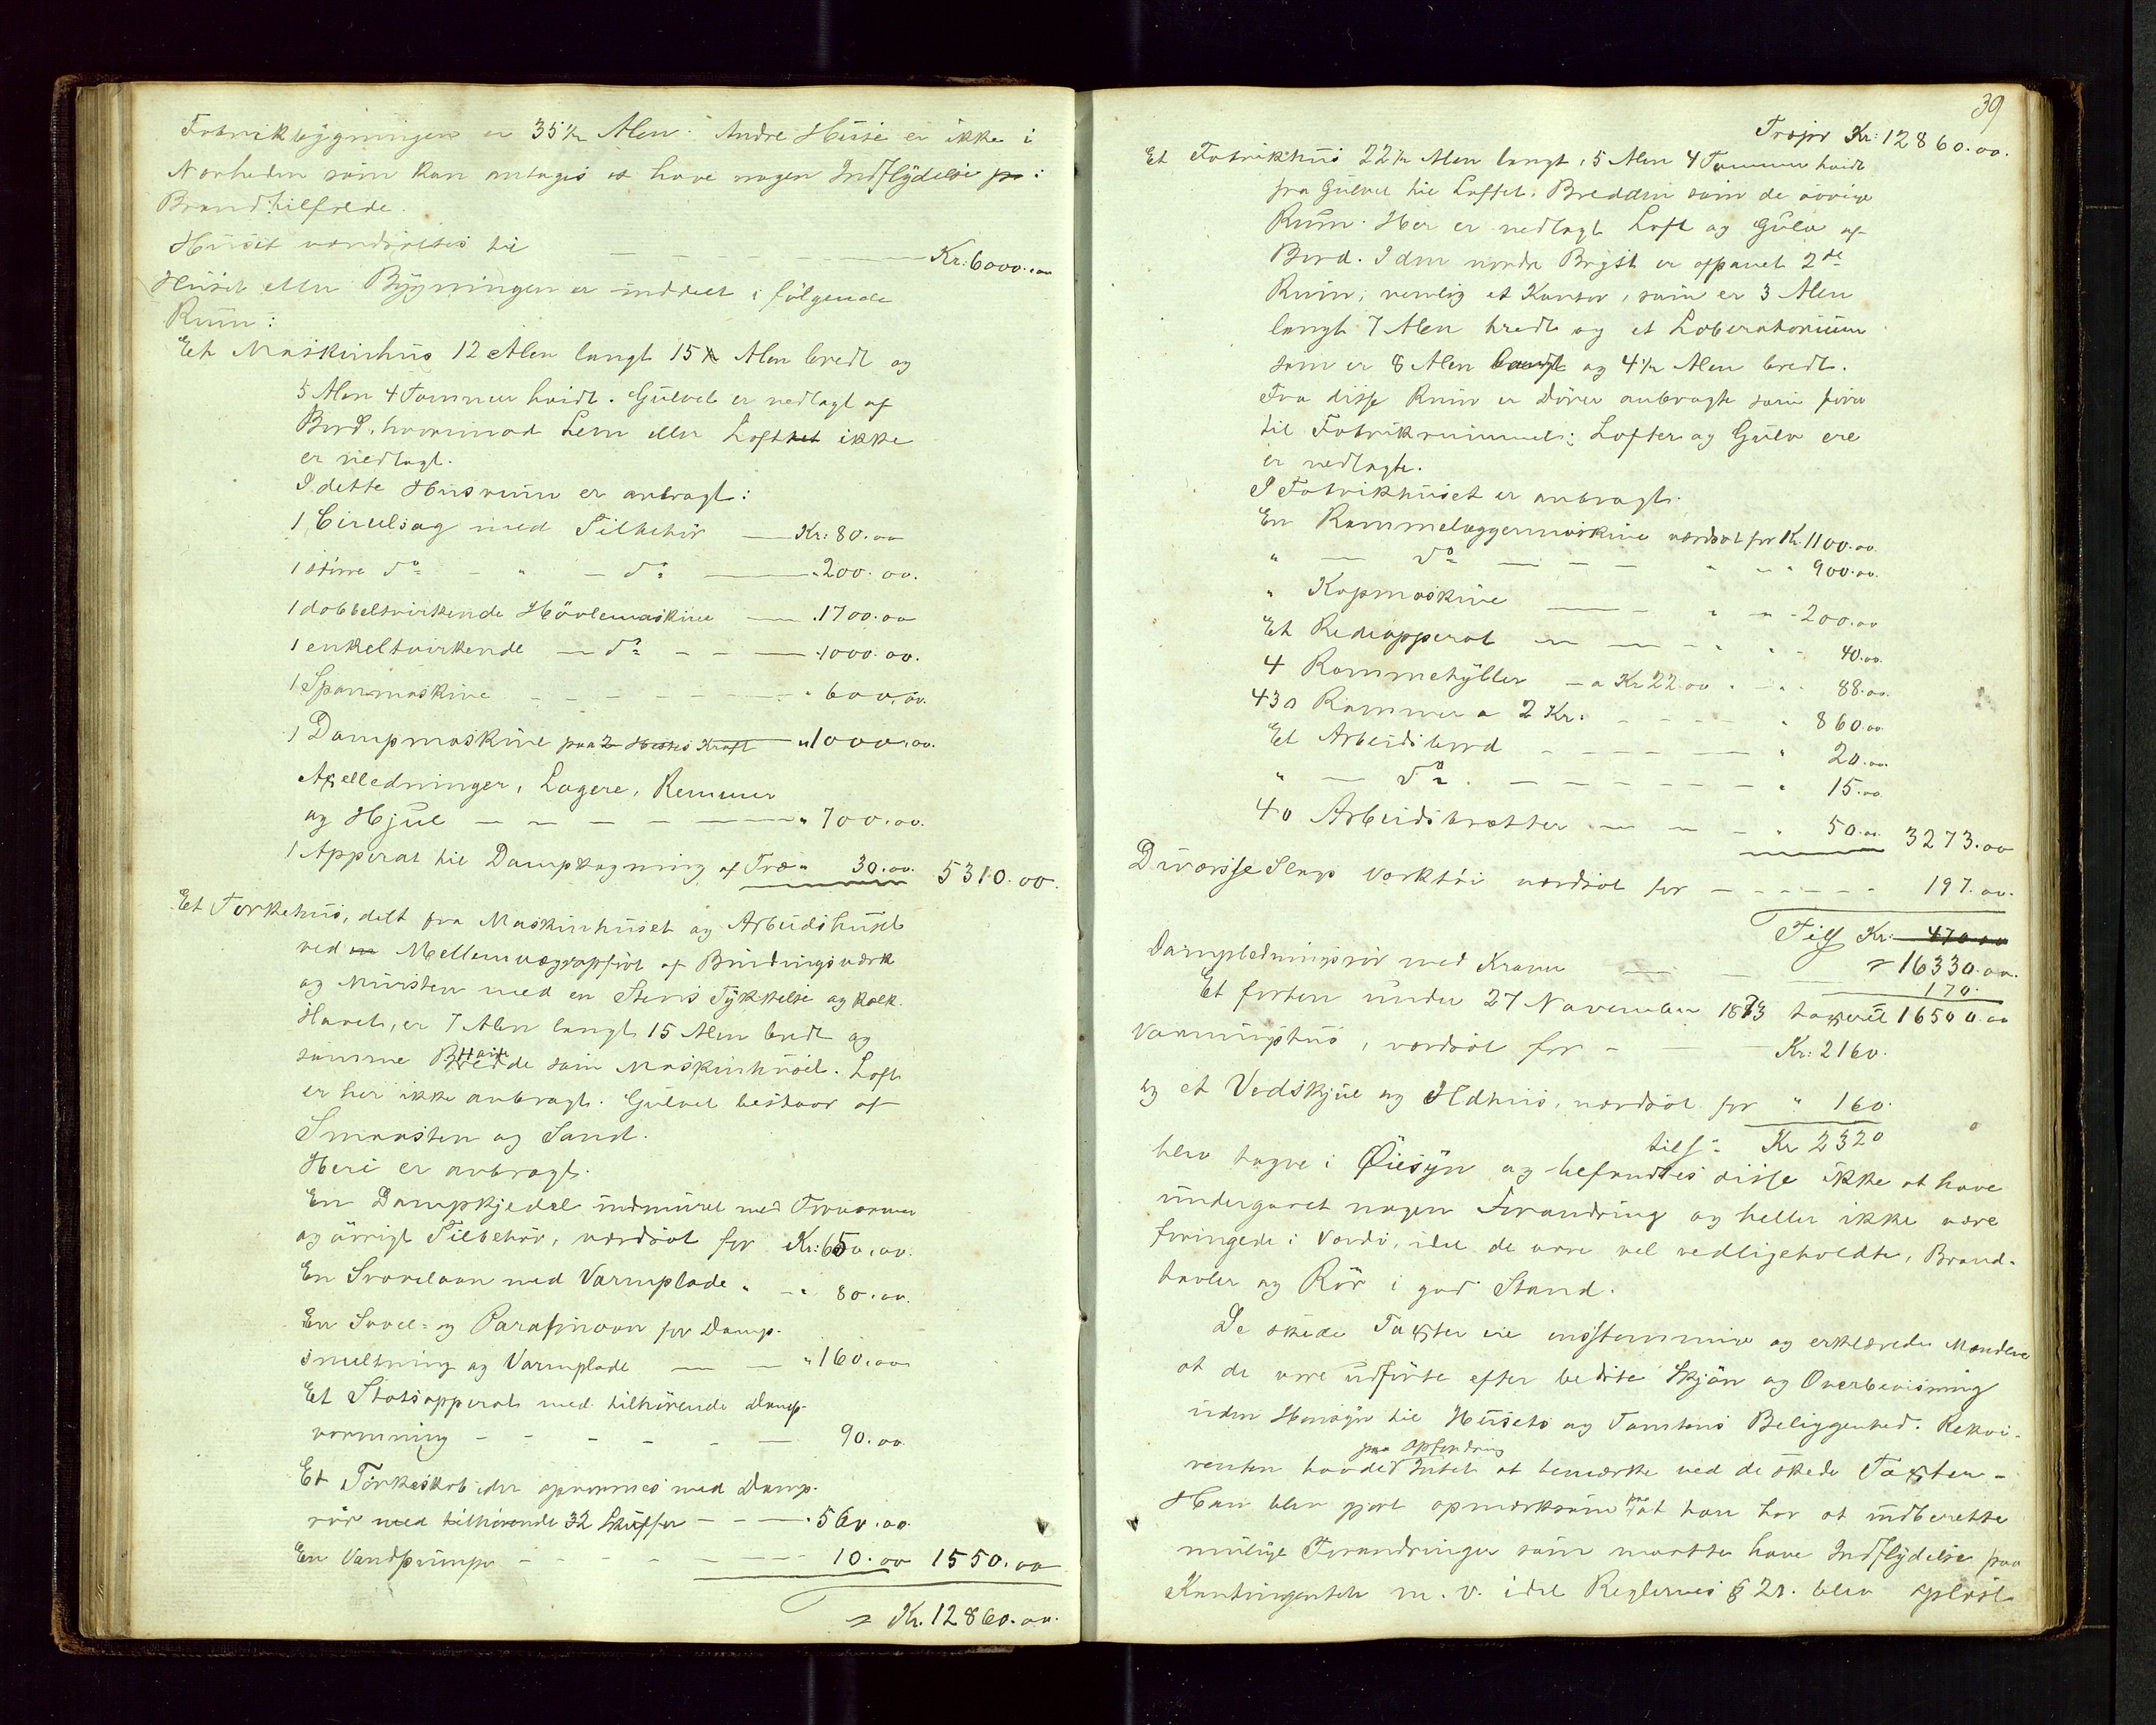 Fabrikbygningen er 35½ Alen. Andre Huse er ikke i
Nærheden som kan antages at have nogen Indflydelse i
Brandtilfælde.
Huset værdsættes til — — — — Kr: 6000.00
Huset eller Bygningen er inddelt i følgende
Rum:
Et Maskinhus 12 Alen langt 15 Alen bredt og
5 Alen 4 Tommer høidt. Gulvet er nedlagt af
Bord, hvorimod Lem eller Loft ikke
er nedlagt.
I dette Husrum er anbragt:
1 Circulsag med Tilbehør — Kr: 80.00
1 større do - " - do — " 200.00.
1 dobbeltvirkende Høvlemaskine — " 1700.00
1 enkeltvirkende — do - - — " 1000.00.
1 Spanmaskine - - - - " 600.00.
1 Dampmaskine paa 2 Hestes Kraft " 1000.00.
Axelledninger, Lagere, Remmer
og Hjul — — — — " 700.00.
1 Apperat til Dampkogning af Træ " 30.00. 5310.00.
Et Tørkehus, delt fra Maskinhuset og Arbeidshuset
ved Mellemvæg opført af Bindingsværk
og Mursten med en Stens Tykkelse og Kalk.
Huset, er 7 Alen langt 15 Alen bredt og
samme Høide som Maskinhuset. Loft
er her ikke anbragt. Gulvet bestaar af
Smaasten og Sand.
Heri er anbragt.
En Dampkjedel indmuret med Forvarmer
og øvrigt Tilbehør, værdsat for Kr: 650.00.
En Svovelovn med Varmplade " - " 80.00.
En Svovel- og Parafinovn for Damp-
smeltning og Varmplade — — " 160.00
Et Statsapperat med tilhørende Damp-
varmning - - - - - — 90.00.
Et Tørkeskab der opvarmes med Damp-
rør med tilhørende 32 Skuffer - - — " 560.00
En Vandpumpe - - - - - 10.00 1550.00
Kr. 12860.00.
39
Trspr Kr: 12860.00.
Et Fabrikhus 22½ Alen langt, 5 Alen 4 Tommer høidt
fra Gulvet til Loftet. Bredden som de øvrige
Rum. Her er nedlagt Loft og Gulv af
Bord. I den nordre Bryst er afpanet 2de
Rum, nemlig et Kontor, som er 3 Alen
langt 7 Alen bredt og et Laberatorium
som er 8 Alen langt og 4½ Alen bredt.
Fra disse Rum er Dører anbragte som fører
til Fabrikrummet; Lofter og Gulv ere
er nedlagte.
I Fabrikhuset er anbragt.
En Rammelæggermaskine værdsat for Kr. 1100.00.
" — do — - - " " " 900.00.
" Kapmaskine — - " " - 200.00
Et Redeapperat — — - " " - 40.00.
4 Rammehyller — a Kr 22.00 " - " . 88.00.
430 Rammer a 2 Kr: - - - - " 860.00.
Et Arbeidsbord - - - - — " 20.00.
" — do. — - - - - " 15.00
40 Arbeidsbrætter — — - " 50.00. 3273.00
Diverse Slags Værktøi værdsat for - - - - - 197.00.
Tils Kr: 470.00
16330.00.
Dampledningsrør med Kraner — — 170.
Et forhen under 27 November 1873 taxeret 16500.00
Varmingshus, værdsat for - — Kr: 2160.
og et Vedskjul og Ildhus, værdsat for " 160.
tils: Kr 2320
blev tagne i Øiesyn og befandtes disse ikke at have
undergaaet nogen Forandring og heller ikke være
foringede i Værdi, idet de vare vel vedligeholdte, Brand-
tavler og Rør i god Stand.
De skede Taxter ere enstemmige og erklærede Mændene
at de vare udførte efter bedste Skjøn og Overbevisning
uden Hensyn til Husets og Tomtens Beliggenhed. Rekvi-
paa Opfordring
renten havde Intet at bemærke ved de skede Taxter -
Han blev gjort opmærksom paa at han har at indberette
mulige Forandringer som maatte have Indflydelse paa
Kontingentet m. v. idet Reglernes § 28. blev oplæst